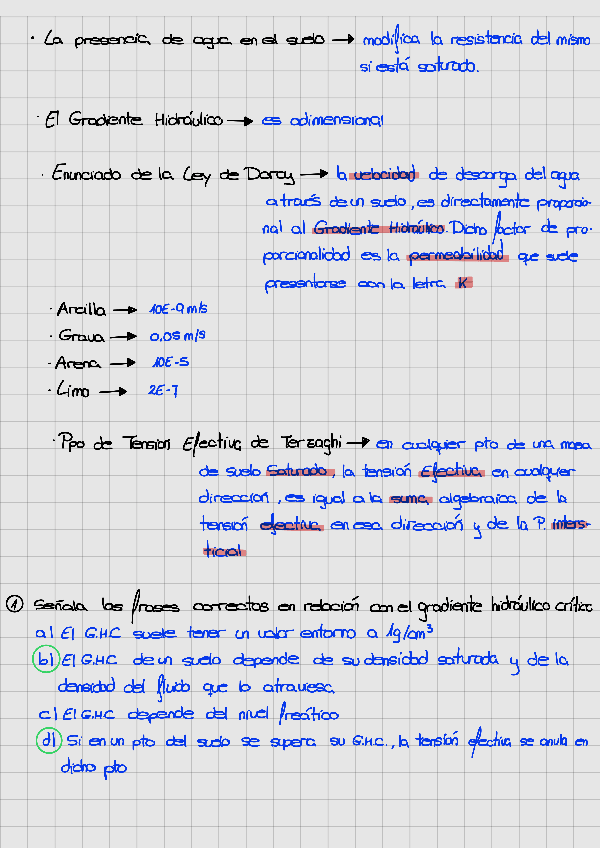 · La presencia de agua en el suelo → modifica la resistencia del mismo
si está saturado.
· El Gradiente Hidráulico → es adimensional
· Enunciado de la Ley de Darcy → la velocidad de descarga del agua
a través de un suelo, es directamente proporcio-
nal al Gradiente Hidráulico. Dicho factor de pro-
porcionalidad es la permeabilidad que suele
presentarse con la letra K
· Arcilla → 10E-9 m/s
· Grava → 0,05 m/s
· Arena → 10E-5
· Limo → 2E-7
· Ppo de Tensión Efectiva de Terzaghi → en cualquier pto de una masa
de suelo Saturado, la tensión Efectiva en cualquier
dirección, es igual a la suma algebraica de la
tensión efectiva en esa dirección y de la P. inters-
ticial
① Señala las frases correctas en relación con el gradiente hidráulico crítico
a) El G.H.C suele tener un valor entorno a 1g/cm³
b) El G.H.C de un suelo depende de su densidad saturada y de la
densidad del fluido que lo atraviesa
c) El G.H.C depende del nivel freático
d) Si en un pto del suelo se supera su G.H.C., la tensión efectiva se anula en
dicho pto